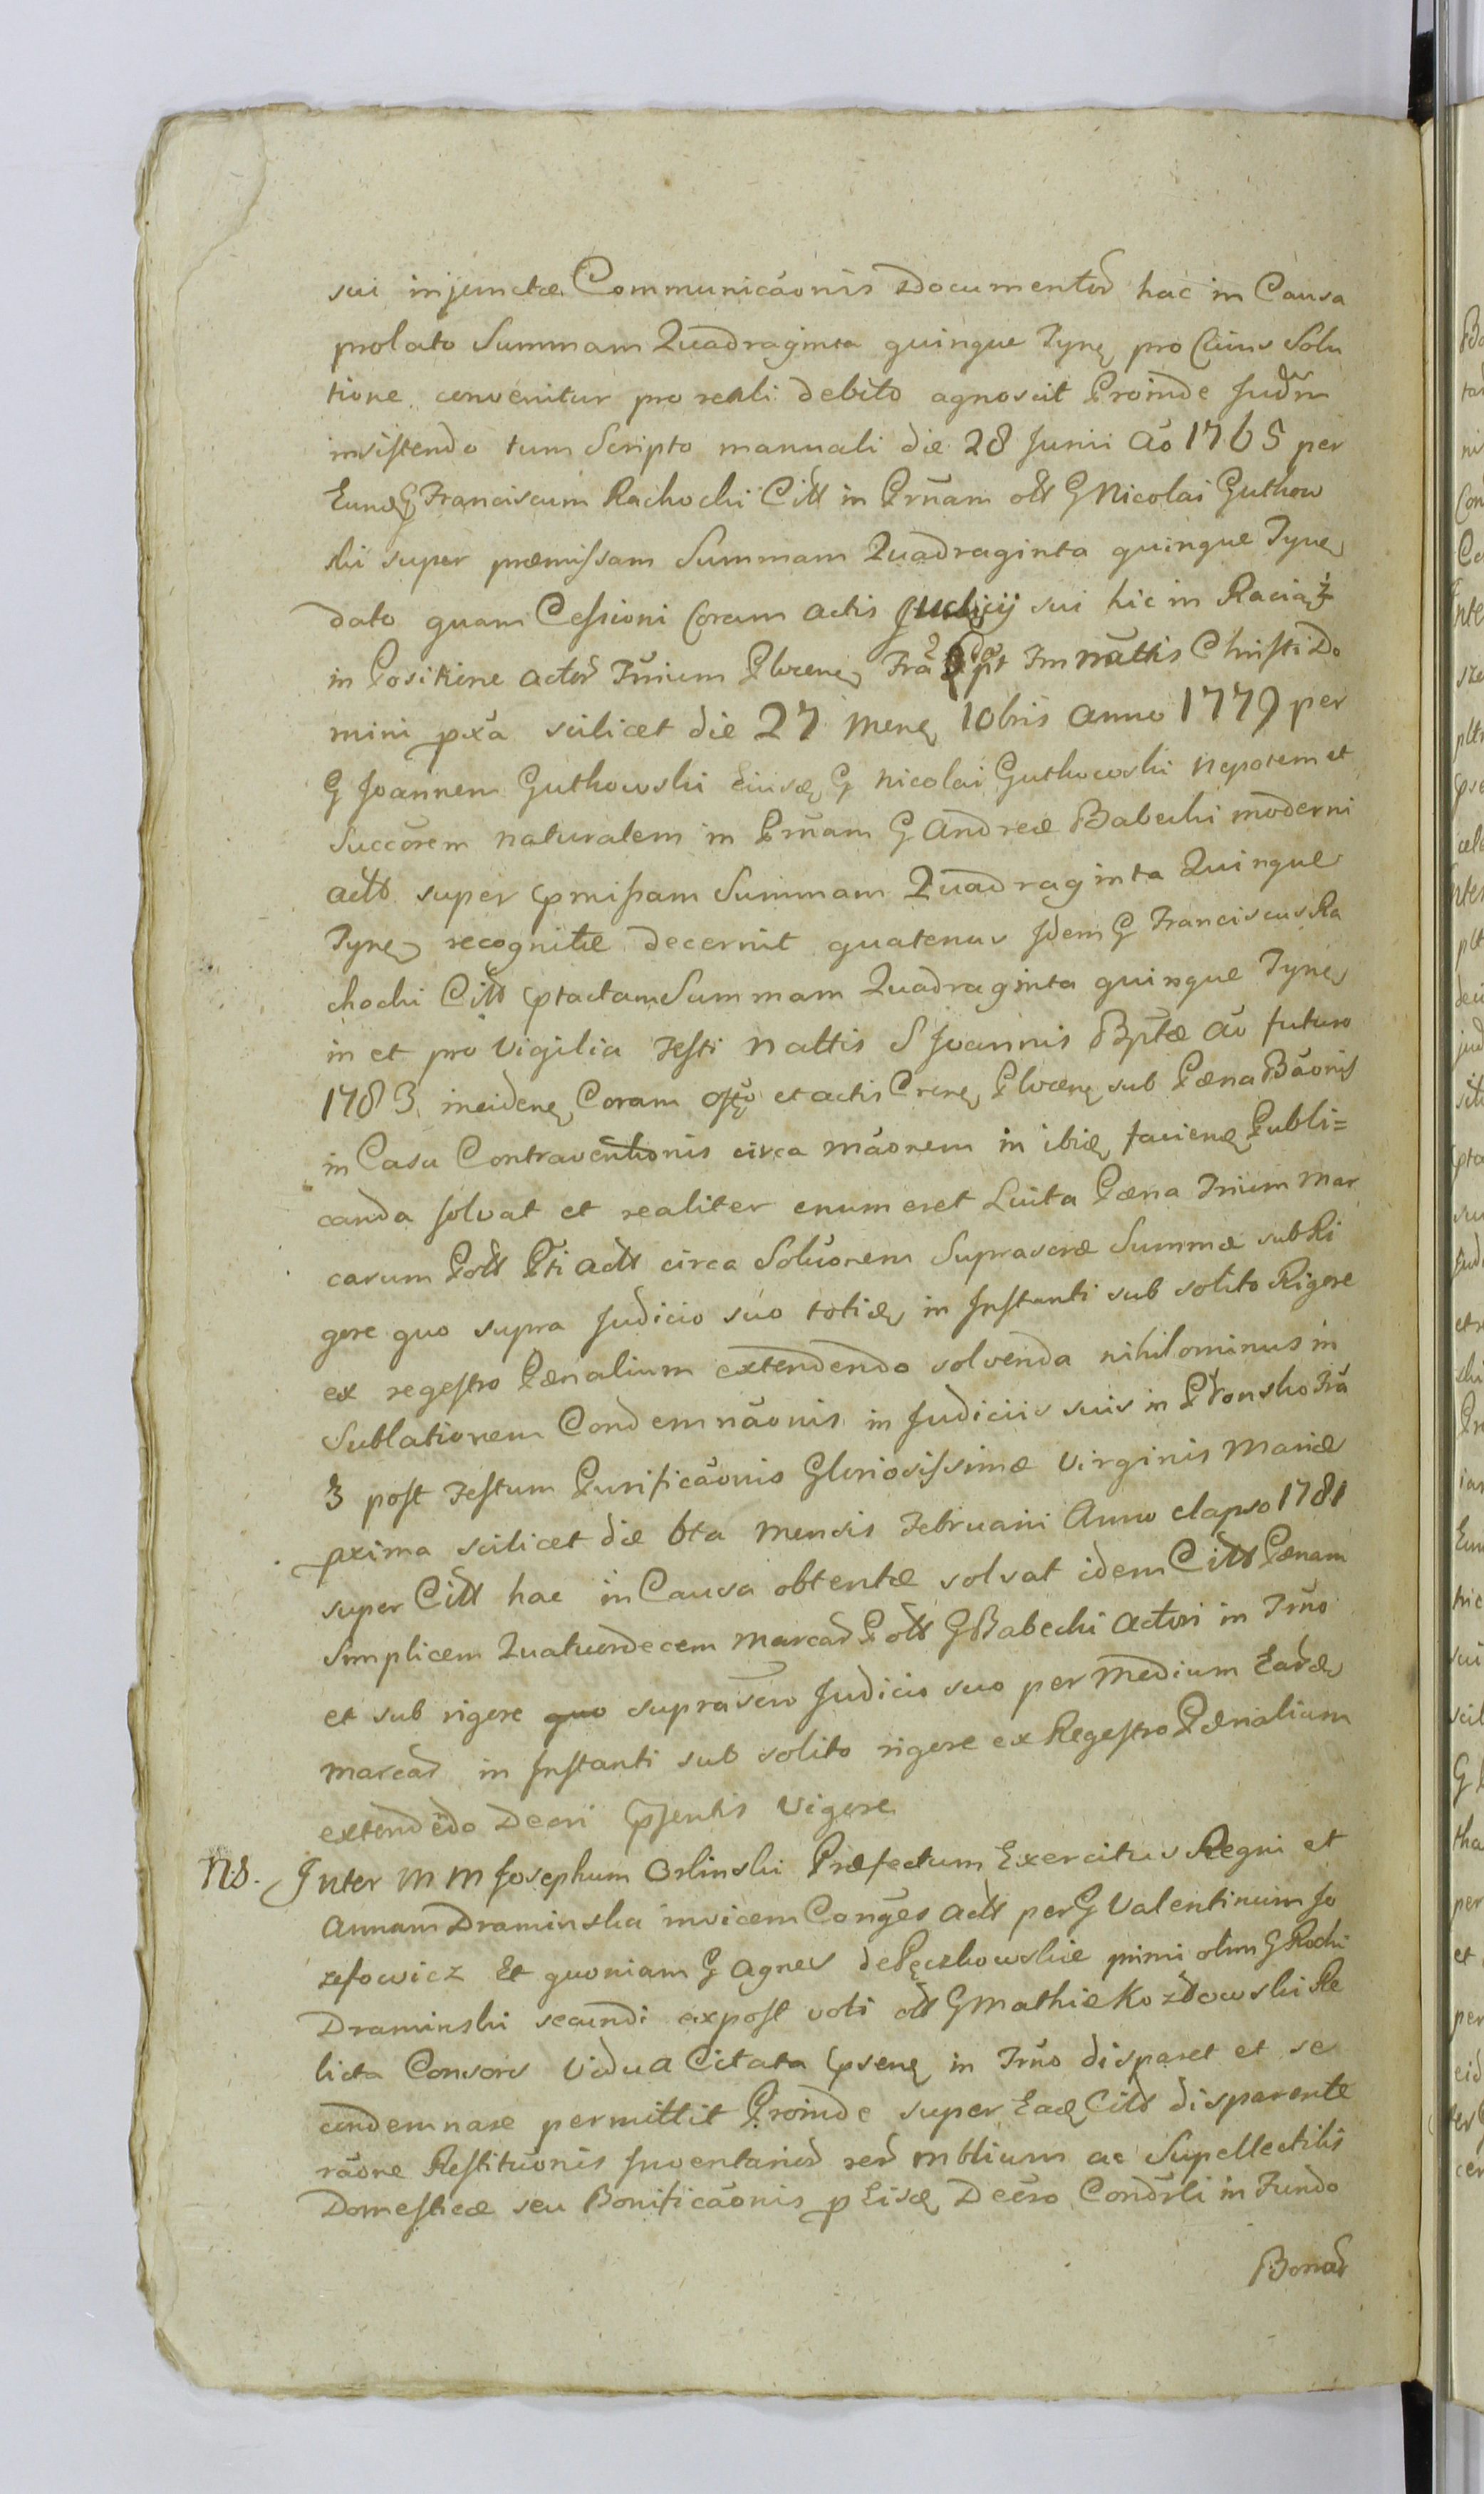 sui injunctæ Communicãonis Documentor̃ hac in Causa
prolato Summam Quadraginta quinque Tynę pro Cuius Solu
tione convenitur pro reali debito agnoscit Proinde Judm̃
insistendo tum Scripto manuali die 28 Junii Aõ 1765 per
Eundę G Franciscum Rachocki Citt̃ in Prñam ott̃ G Nicolai Guthow
ski super præmissam Summam Quadraginta quinque Tynę
dato quam Cessioni Coram actis Judicij sui hic in Raciąż
in Positione actor̃ Trm̃ium Plocenę Frã 2 pt Fm nãttis Christi Do
mini pxã scilicet die 27 Menę 10bris Anno 1779 per
G Joannem Guthowski Eiusdę G Nicolai Guthowski Nepotem et
Succõrem naturalem in Prñam G Andreæ Babecki moderni
actt̃ super pmissam Summam Quadraginta Quinque
Tynę recognitæ decernit quatenus Idem G Franciscus Ra
chocki Citt̃ ptactam Summam Quadraginta quinque Tynę
in et pro Vigilia Festi Nattis S Joannis Bptæ Aõ futuro
1783 incidenę Coram offõ et actis Crenę Plocenę sub Pæna Bãonis
in Casu Contraventionis circa mãonem in ibidę faciendę Publi=
canda solvat et realiter enumeret Luita Pæna Trium Mar
carum Pott̃ Pti actt̃ circa Solũonem Suprascræ Summæ sub Ri
gore quo supra Judicio suo totidę in Instanti sub solito Rigore
ex regestro Pænalium extendendo solvenda nihilominus in
Sublationem Condemnãonis in Judiciis suis in Płonsko Frã
3 post Festum Purificãonis Gloriosissimæ Virginis Mariæ
pxima scilicet die 6ta Mensis Februarii Anno elapso 1781
super Citt̃ hac in Causa obtentæ solvat idem Citt̃ Pænam
Simplicem Quatuordecem Marcar̃ Pott̃ G Babecki Actori in Trm̃o
et sub rigore quo suprascro Judicio suo per Medium Eardę
Marcar̃ in Instanti sub solito rigore ex Regestro Pænalium
extendẽdo Decri psentis Vigore
NS. Inter M M Josephum Orlinski Præfectum Exercitus Regni et
Annam Draminska invicem Conges̃ Actt̃ per G Valentinum Jo
zefowicz Et quoniam G Agnes de Pęczkowskie primi olim G Rochi
Draminski secundi expost voti ott̃ G Mathiæ Kozłowski Re
licta Consors Vidua Citata psenę in Trm̃o disparet et se
condemnare permittit Proinde super Eadę Citt̃ disparente
rãone Restitũonis Inventarior̃ rer̃ mblium ac Supellectilis
Domesticæ seu Bonificãonis p Eisdę Decr̃o Condr̃li in Fundo
Bonor̃